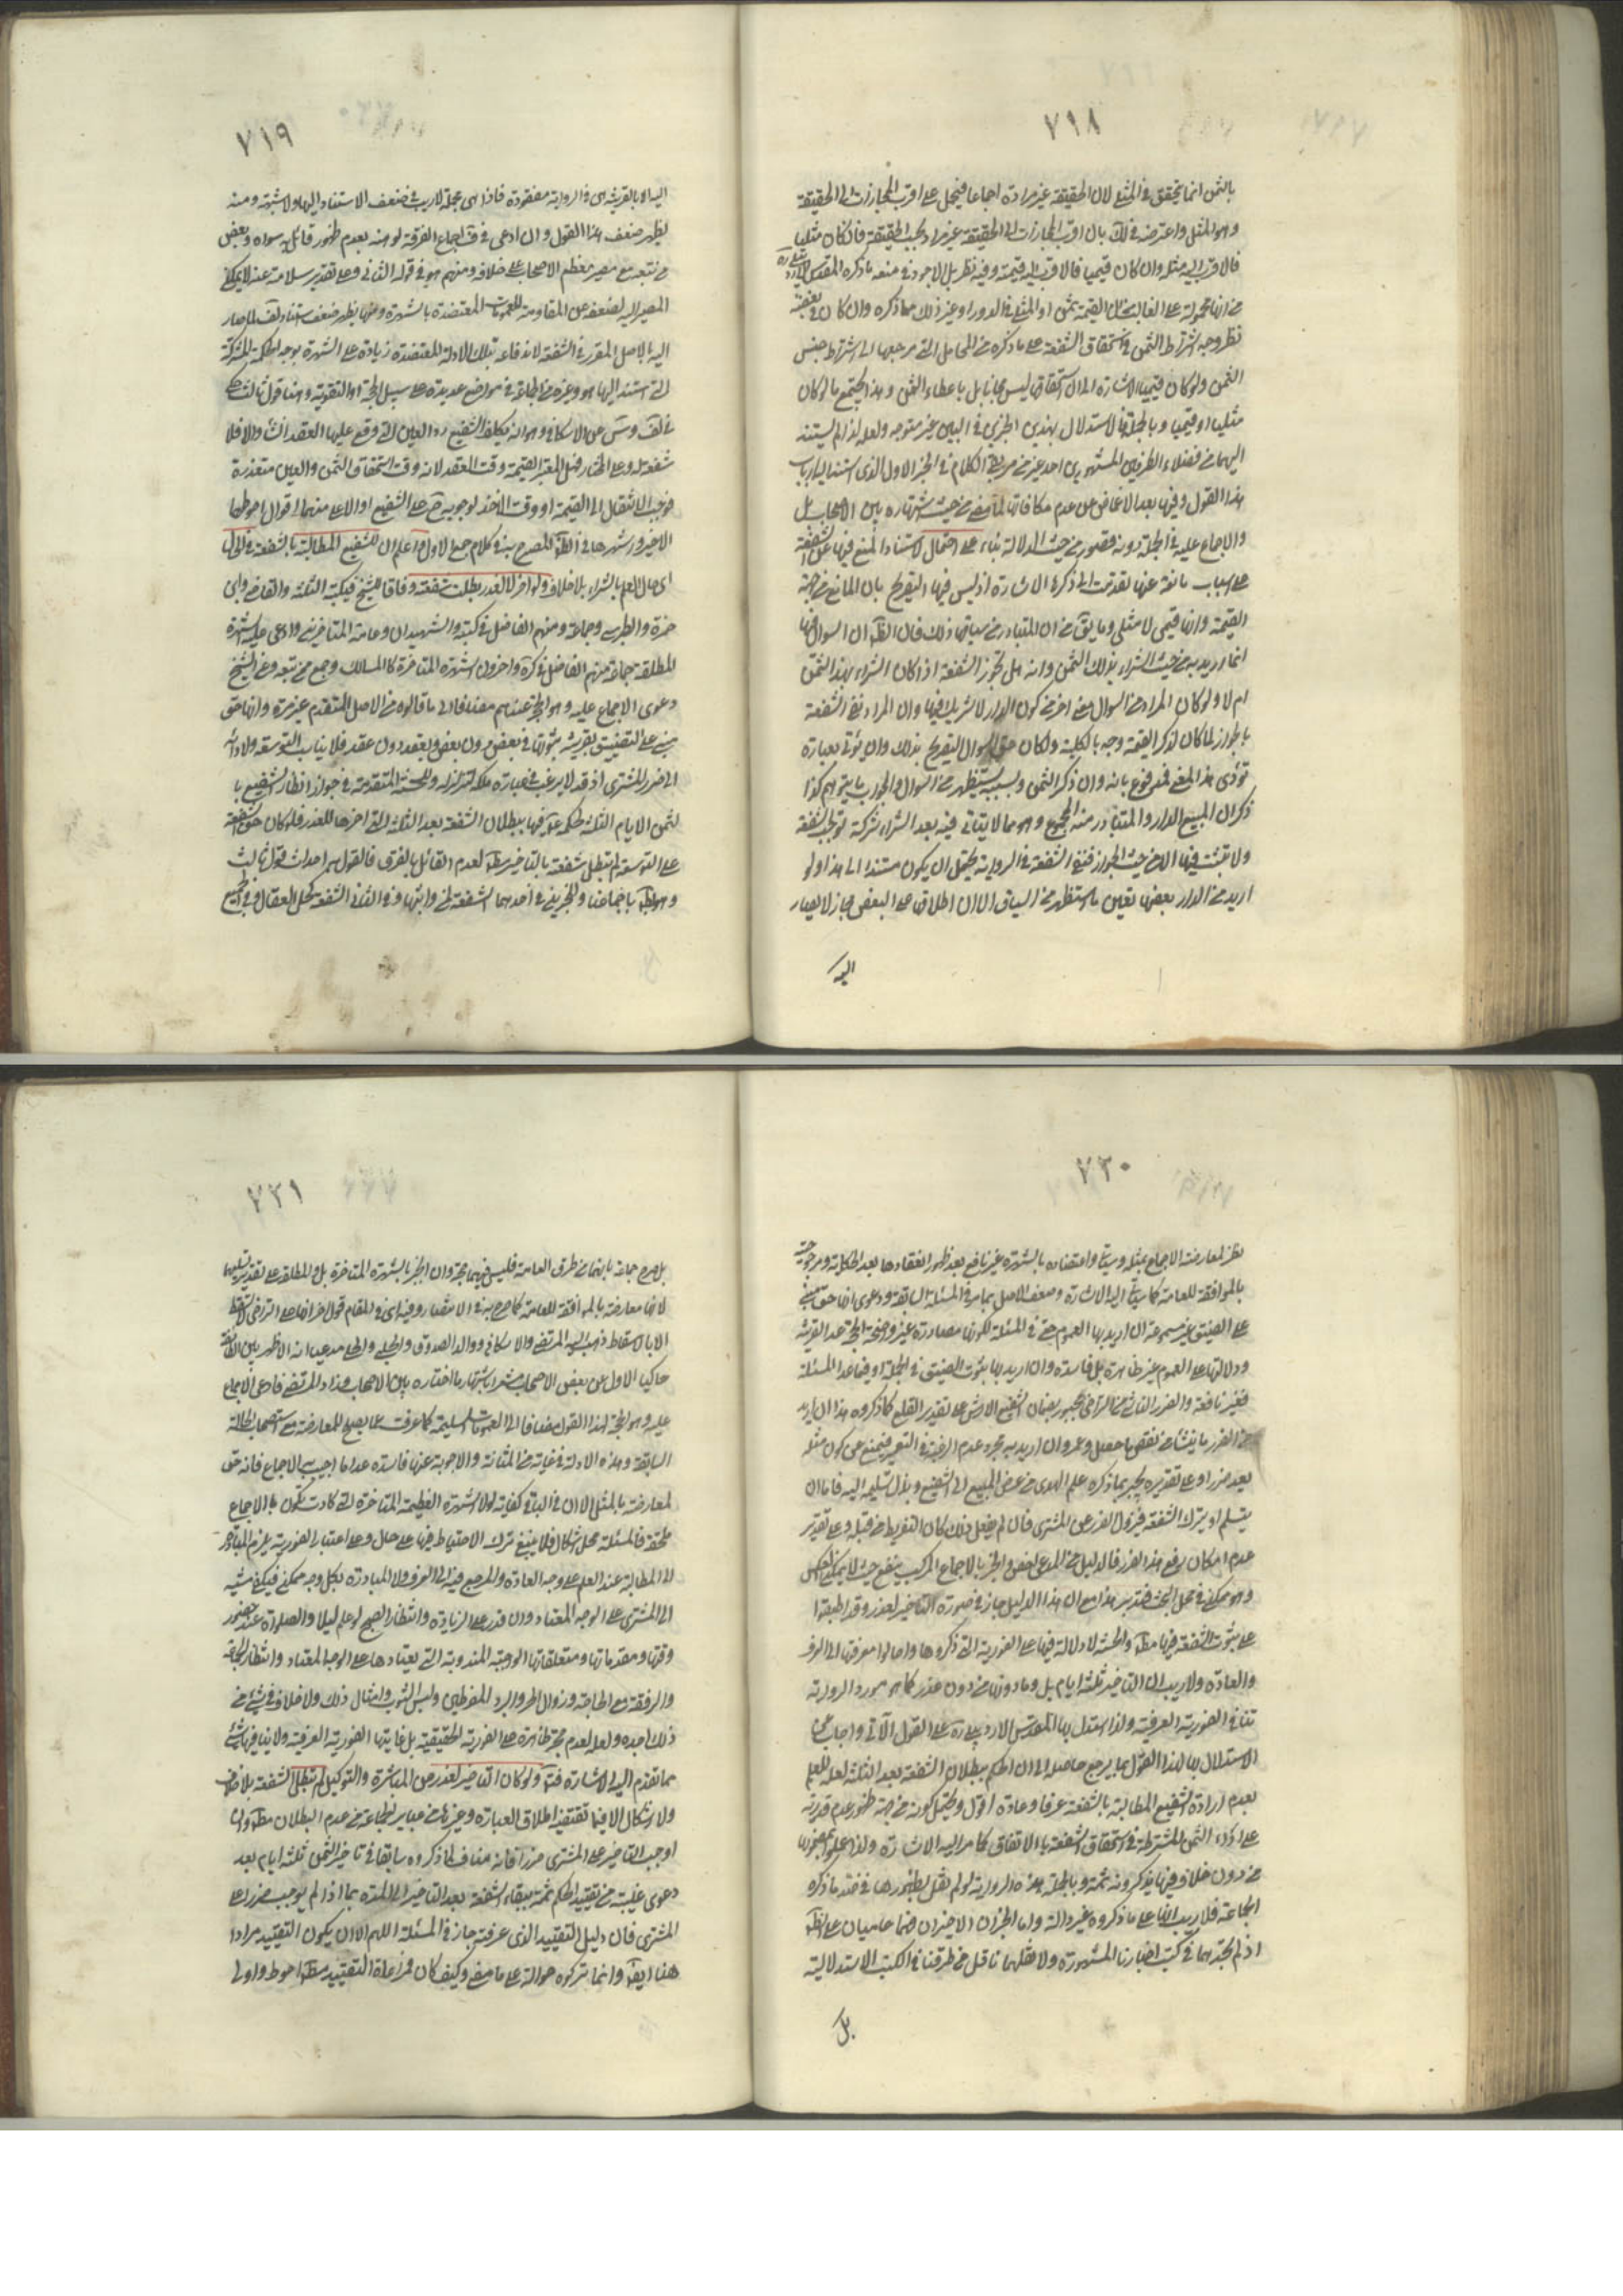 ٧١٨
بالثمن انما يتحقق في المثلي لان الحقيقة غير مرادة اجماعا فيحمل على اقرب المجازات الى الحقيقة
وهو المثل واعترضه في لك بان اقرب المجازات الى الحقيقة غير مراد بحسب الحقيقة فان كان مثليا
فالاقرب اليه مثله وان كان قيميا فالاقرب اليه قيمته وفيه نظر بل الاجود في منعه ما ذكره المقدس الاردبيلي ره
من انها محمولة على الغالب
نظر وجه اشتراط الثمن في استحقاق الشفعة على ما ذكره من المحامل التي مرجعها الى اشتراط جنس
الثمن ولو كان قيميا الاشارة الى ان استحقاق ليس مجانا بل باعطاء الثمن وهذا يجتمع ما لو كان
مثليا او قيميا وبالجملة فالاستدلال بهذين الخبرين في البين غير متوجه ولعله لذا لم يستند
اليهما من فضلاء الطرفين المشهورين احد غير من مر بقي الكلام في الخبر الاول الذي استند اليه ارباب
هذا القول وفيه بعد الاغماض عن عدم مكافاته لما مضى من حيث اشتهاره بين الاصحاب بل
والاجماع عليه في الجملة دونه قصور من حيث الدلالة بناء على احتمال استناد المنع فيها عن الشفعة
على اسباب مانعة عنها تقدمت الى ذكرها الاشارة اذ ليس فيها التصريح بان المانع من جهة
القيمة وانها قيمي لا مثلي وما يق من ان المتبادر من سياقها ذلك فان الظ ان السوال فيها
انما اريد به من حيث الشراء بذلك الثمن وانه هل تجوز الشفعة اذا كان الشراء بهذا الثمن
ام لا ولو كان المراد من السوال معنى اخر من كون الدار لا شريك فيها وان المراد نفي الشفعة
بالجوار لما كان لذكر القيمة وجه بالكلية ولكان حق السوال التصريح بذلك وان يؤتى بعبارة
تؤدي هذا المعنى فمدفوع بانه وان ذكر الثمن وبسببه يستظهر من السوال والجواب ما يتوهم كذا
ذكر ان المبيع الدار والمتبادر منه المجموع وهو مما لا يتاتى فيه بعد الشراء شركة توجب الشفعة
ولا تثبت فيها الا من حيث الجوار فنفي الشفعة في الرواية يحتمل ان يكون مستندا الى هذا ولو
اريد من الدار بعضها تعين ما استظهر من السياق الا ان اطلاقها على البعض مجاز لا يصار
اليه
٧١٩
اليه الا بالقرينة هي في الرواية مفقودة فاذا هي مجملة لا ريب في ضعف الاستناد اليها ولا شبهة ومنه
يظهر ضعف هذا القول وان ادعى في ف اجماع الفرقة لوهنه بعدم ظهور قائل به سواه وبعض
من تبعه مع مصير معظم الاصحاب على خلافه ومنهم هو في قوله الثاني وعلى تقدير سلامته عنه لا يمكن
المصير اليه لضعفه عن المقاومة للعمومات المعتضدة بالشهرة ومنها يظهر ضعف استناد لف لما صار
اليه بالاصل المقرر في الشفعة لاندفاعه بتلك الادلة المعتضدة زيادة على الشهرة بوجه الحكمة المشتركة
التي استند اليها هو وغيره من الجماعة في مواضع عديدة على سبيل الحجة او التقوية وهنا قول ثالث
في لف وس عن الاسكافي وهو انه يكلف الشفيع رد العين التي وقع عليها العقد ان شاء والا فلا
شفعة له وعلى المختار فهل المعتبر القيمة وقت العقد لانه وقت استحقاق الثمن والعين متعذرة
فوجب الانتقال الى القيمة او وقت الاخذ لوجوبه ح على الشفيع او الاعلى منهما اقوال احوطها
الاخير واشهرها في الظ المصرح به في كلام جمع الاول واعلم ان للشفيع المطالبة بالشفعة في الحال
اي حال العلم بالشراء بلا خلاف ولو اخر لا لعذر بطلت شفعته وفاقا للشيخ في كتبه الثلثة والقاضي وابن
حمزة والطبرسي وجماعة ومنهم الفاضل في كتبه والشهيدان وعامة المتاخرين وادعى عليه الشهرة
المطلقة جماعة منهم الفاضل في كره واخرون الشهرة المتاخرة كالمسالك وجمع ممن تبعه وعن الشيخ
دعوى الاجماع عليه وهو الحجة عندهم مضافا الى ما قالوه من الاصل المتقدم غير مرة وانها حق
مبني على التضييق بقرينة ثبوتها في بعض دون بعض وبعقد دون عقد فلا يناسب التوسعة ولادائه
الى ضرر المشتري اذ قد لا يرغب في عمارة ملكه لتزلزله وللحسنة المتقدمة في جواز انتظار الشفيع با
لثمن الايام الثلثة لحكمه ع فيها ببطلان الشفعة بعد الثلثة التي اخرها للعذر فلو كان حق الشفعة
على التوسعة لم تبطل شفعته بالتاخير مط لعدم القائل بالفرق فالقول به احداث قول ثالث
وهو بط باجماعنا وللخبرين في احدهما الشفعة لمن واثبها وفي الثاني الشفعة كحل العقال وفي الجميع
٧٢٠
نظر لمعارضة الاجماع بمثله وسياتي واعتضاده بالشهرة غير نافع بعد ظهور انعقادها بعد الحكاية ومرجوحيته
بالموافقة للعامة كما سياتي اليه الاشارة وضعف الاصل بما مر في المسئلة السابقة ودعوى انها حق مبني
على الضيق غير مسموعة ان اريد بها العموم حتى في المسئلة لكونها مصادرة غير واضحة الحجة عدا القرينة
ودلالتها على العموم غير ظاهرة بل فاسدة وان اريد بها ثبوت الضيق في الجملة او فيما عدا المسئلة
فغير نافعة والضرر الناشئ من التراخي مجبور بضمان الشفيع الارش على تقدير القلع كما ذكروه هذا ان اريد
من الضرر ما ينشا من نقض ما حصل وعمر وان اريد به مجرد عدم الرغبة في التعمير فيمنع عن كون مثله
يعد ضررا وعلى تقديره يجبر بما ذكره علم الهدى من عرض المبيع الى الشفيع وبذل تسليمه اليه فاما ان
يتسلم او يترك الشفعة فيزول الضرر عن المشتري فان لم يفعل ذلك كان التفريط من قبله وعلى تقدير
عدم امكان رفع هذا الضرر فالدليل من المدعى اخص والجبر بالاجماع المركب ينفع حيث لا يمكن العكس
وهو ممكن في محل البحث فتدبر هذا مع ان هذا الدليل جار في صورة التاخير لعذر وقد اطبقوا
على ثبوت الشفعة فيها مط والحسنة لا دلالة فيها على الفورية التي ذكروها واحالوا معرفتها الى العرف
والعادة ولا ريب ان التاخير ثلثة ايام بل وما دونها من دون عذر كما هو مورد الرواية
تنافي الفورية العرفية ولذا استدل بها المقدس الاردبيلي ره على القول الاتي واجاب عن
الاستدلال بها لهذا القول بما يرجع حاصله الى ان الحكم ببطلان الشفعة بعد الثلثة لعله للعلم
بعدم ارادة الشفيع المطالبة بالشفعة عرفا وعادة اقول ويحتمل كونه من جهة ظهور عدم قدرته
على اداء الثمن المشترطة في استحقاق الشفعة بالاتفاق كما مر اليه الاشارة ولذا عملوا بمضمونها
من دون خلاف فيها يذكرونه ثمة وبالجملة هذه الرواية لو لم نقل بظهورها في ضد ما ذكره
الجماعة فلا ريب انها على ما ذكروه غير دالة واما الخبران الاخيران فهما عاميان على الظ
اذ لم نجدهما في كتب اخبارنا المشهورة ولا نقلهما ناقل من طرقنا في الكتب الاستدلالية
بل
٧٢١
بل صرح جماعة بانهما من طرق العامة فليس فيهما حجة وان انجبرا بالشهرة المتاخرة بل والمطلقة على تقدير تسليمها
لانها معارضة بالموافقة للعامة كما صرح به في الانتصار وفيه اي في المقام قول اخر انها على التراخي لا تسقط
الا بالاسقاط ذهب اليه المرتضى والاسكافي ووالد الصدوق والحلبي والحلي مدعيا انه الاظهر بين الطائفة
حاكيا الاول عن بعض الاصحاب مشعرا باشتهار ما اختاره بين الاصحاب وزاد المرتضى فادعى الاجماع
عليه وهو الحجة لهذا القول مضافا الى العمومات السليمة كما عرفت عما يصلح للمعارضة مع استصحاب الحالة
السابقة وهذه الادلة في غاية من المتانة والاجوبة عنها فاسدة عدا ما اجيب به الاجماع فانه حق
لمعارضته بالمثل الا ان في الباقي كفاية لولا الشهرة العظيمة المتاخرة التي كادت تكون بالاجماع
ملحقة فالمسئلة محل اشكال فلا ينبغي ترك الاحتياط فيها على حال وعلى اعتبار الفورية يلزم المبادرة
الى المطالبة عند العلم على وجه العادة والمرجع فيه الى العرف ولا المبادرة بكل وجه ممكن فيكفي مشيه
الى المشتري على الوجه المعتاد وان قدر على الزيادة وانتظار الصبح لو علم ليلا والصلوة عند حضور
وقتها ومقدماتها ومتعلقاتها الواجبة المندوبة التي يعتادها على الوجه المعتاد وانتظار الجماعة
والرفقة مع الحاجة وزوال الحر والبرد المفرطين ولبس الثوب وامثال ذلك ولا خلاف في شئ من
ذلك اجده ولعله لعدم حجة ظاهرة على الفورية الحقيقية بل غايتها الفورية العرفية ولا ينافيها شئ
مما تقدم اليه الاشارة فتا ولو كان التاخير لعذر عن المباشرة والتوكيل لم تبطل الشفعة بلا خلاف
ولا اشكال الا فيما تقتضيه اطلاق العبارة وغيرها من عباير الجماعة من عدم البطلان مط وان
اوجب التاخير على المشتري ضررا فانه مناف لما ذكروه سابقا في تاخير الثمن ثلثة ايام بعد
دعوى غيبته من تقييد الحكم ثمة ببقاء الشفعة بعد التاخير الى المدة بما اذا لم يوجب ضررا على
المشتري فان دليل التقييد الذي عرفته جار في المسئلة اللهم الا ان يكون التقييد مرادا
هنا ايضا وانما تركوه حوالة على ما مضى وكيف كان فمراعاة التقييد مط احوط واولى